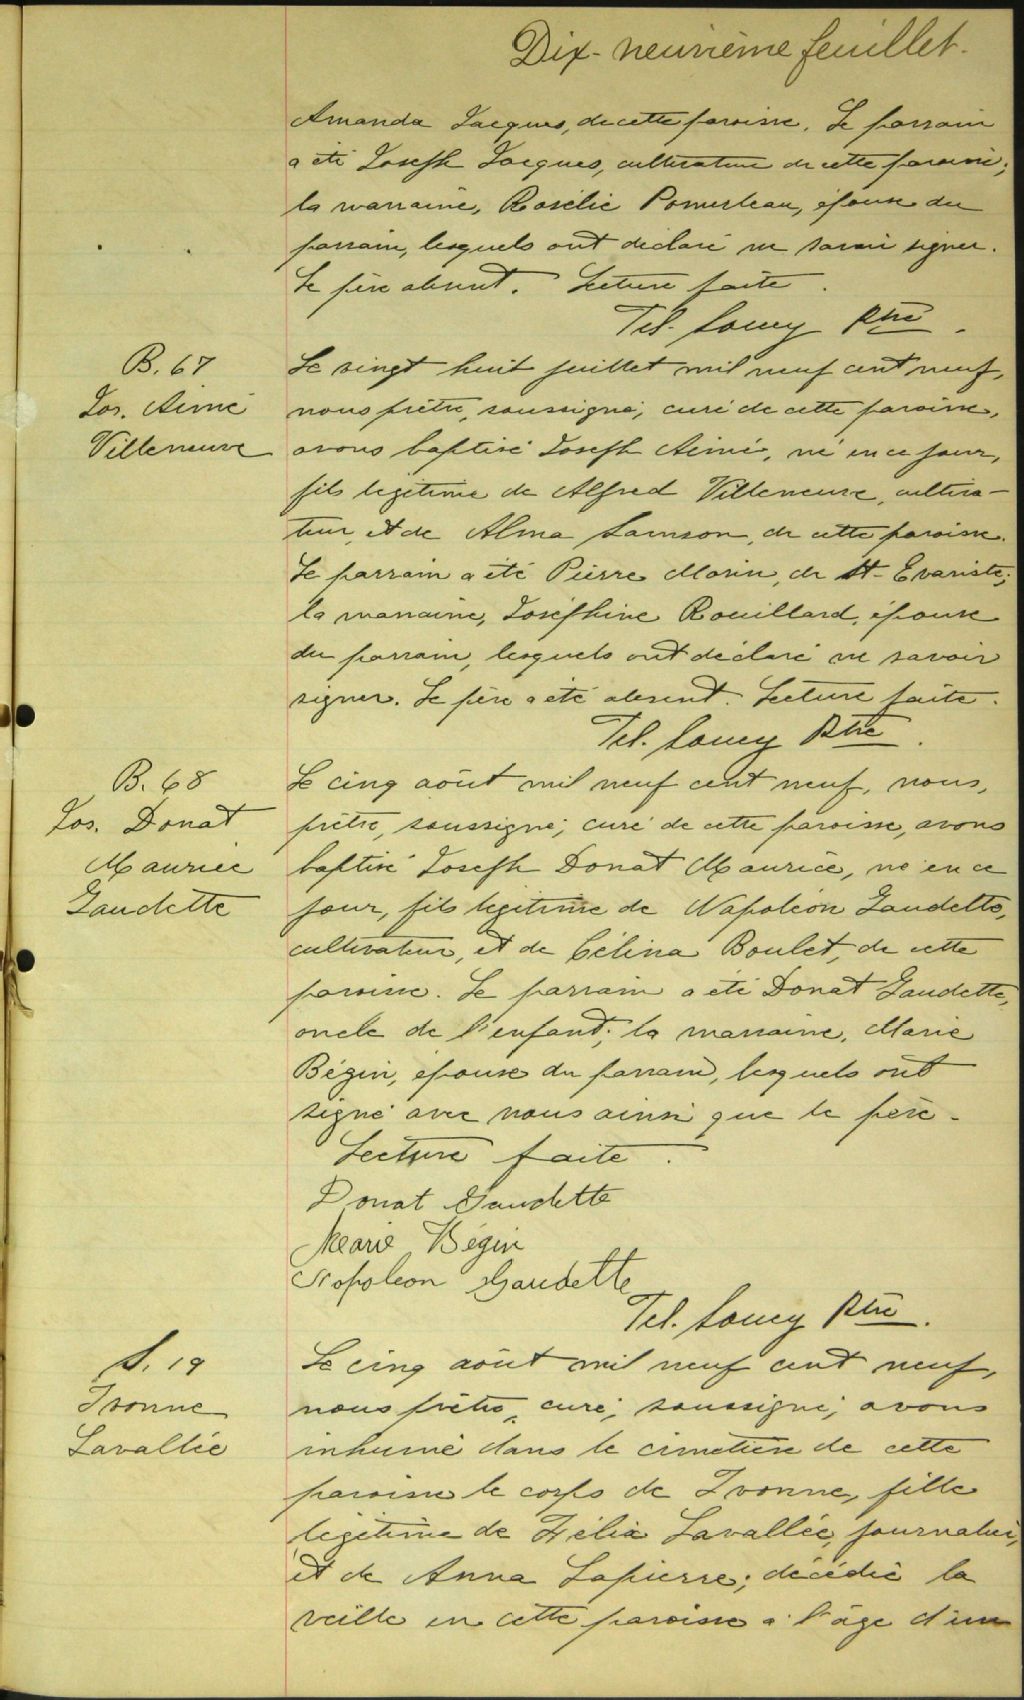 Dix-neuvième feuillet.
Amanda Jacques, de cette paroisse. Le parrain
a été Joseph Jacques, cultivateur de cette paroisse;
la marraine, Rosélie Pomerleau, épouse du
parrain, lesquels ont déclaré ne savoir signer.
Le père absent. Lecture faite.
Tel. Soucy Ptre.
B. 67
Jos. Aimé
Villeneuve
Le vingt huit juillet mil neuf cent neuf,
nous prêtre, soussigné, curé de cette paroisse,
avons baptisé Joseph Aimé, né en ce jour,
fils légitime de Alfred Villeneuve, cultiva-
teur, et de Alma Samson, de cette paroisse.
Le parrain a été Pierre Morin, de St-Evariste;
la marraine, Joséphine Rouillard, épouse
du parrain, lesquels ont déclaré ne savoir
signer. Le père a été absent. Lecture faite.
Tel. Soucy Ptre.
B. 68
Jos. Donat
Maurice
Gaudette
Le cinq août mil neuf cent neuf, nous,
prêtre, soussigné, curé de cette paroisse, avons
baptisé Joseph Donat Maurice, né en ce
jour, fils légitime de Napoléon Gaudette,
cultivateur, et de Célina Boulet, de cette
paroisse. Le parrain a été Donat Gaudette,
oncle de l'enfant; la marraine, Marie
Bégin, épouse du parrain, lesquels ont
signé avec nous ainsi que le père.
Lecture faite.
Donat Gaudette
Marie Bégin
Napoleon Gaudette
Tel. Soucy Ptre.
S. 19
Yvonne
Lavallée
Le cinq août mil neuf cent neuf,
nous prêtre, curé, soussigné, avons
inhumé dans le cimetière de cette
paroisse le corps de Yvonne, fille
légitime de Félix Lavallée, journalier,
et de Anna Lapierre; décédée la
veille en cette paroisse a l'âge d'un